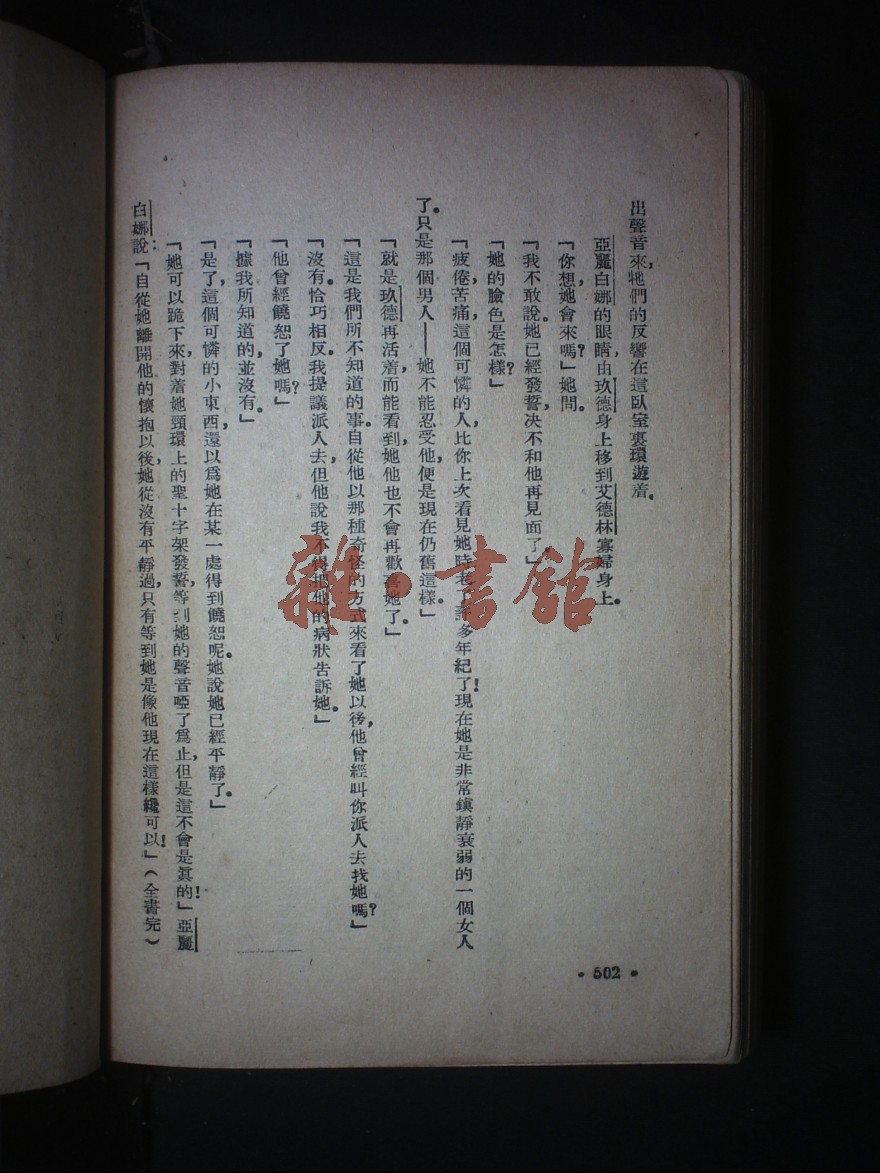 出聲音來，牠們的反響在這臥室裏環遊着。
亞麗白娜的眼睛由玖德身上移到艾德林寡婦身上。
「你想她會來嗎？」她問。
「我不敢說。她已經發誓決不和他再見面了。」
「她的臉色是怎樣？」
「疲倦，苦痛，這個可憐的人，比你上次看見她時老了許多年紀了！現在她是非常鎮靜衰弱的一個女人
了。只是那個男人——她不能忍受他，便是現在仍舊這樣。」
「就是玖德再活着，而能看到她，他也不會再歡喜她了。」
「這是我們所不知道的事。自從他以那種奇怪的方式來看了她以後，他曾經叫你派人去找她嗎？」
「沒有。恰巧相反。我提議派人去，但他說我不得把他的病狀告訴她。」
「他曾經饒恕了她嗎？」
「據我所知道的，並沒有。」
「是了，這個可憐的小東西，還以爲她在某一處得到饒恕呢。她說她已經平靜了。」
「她可以跪下來，對着她頸環上的聖十字架發誓，等到她的聲音啞了爲止，但是這不會是眞的！」亞麗
白娜說：「自從她離開他的懷抱以後，她從沒有平靜過，只有等到她是像他現在這樣纔可以！」（全書完）
• 502 •
雜·書館